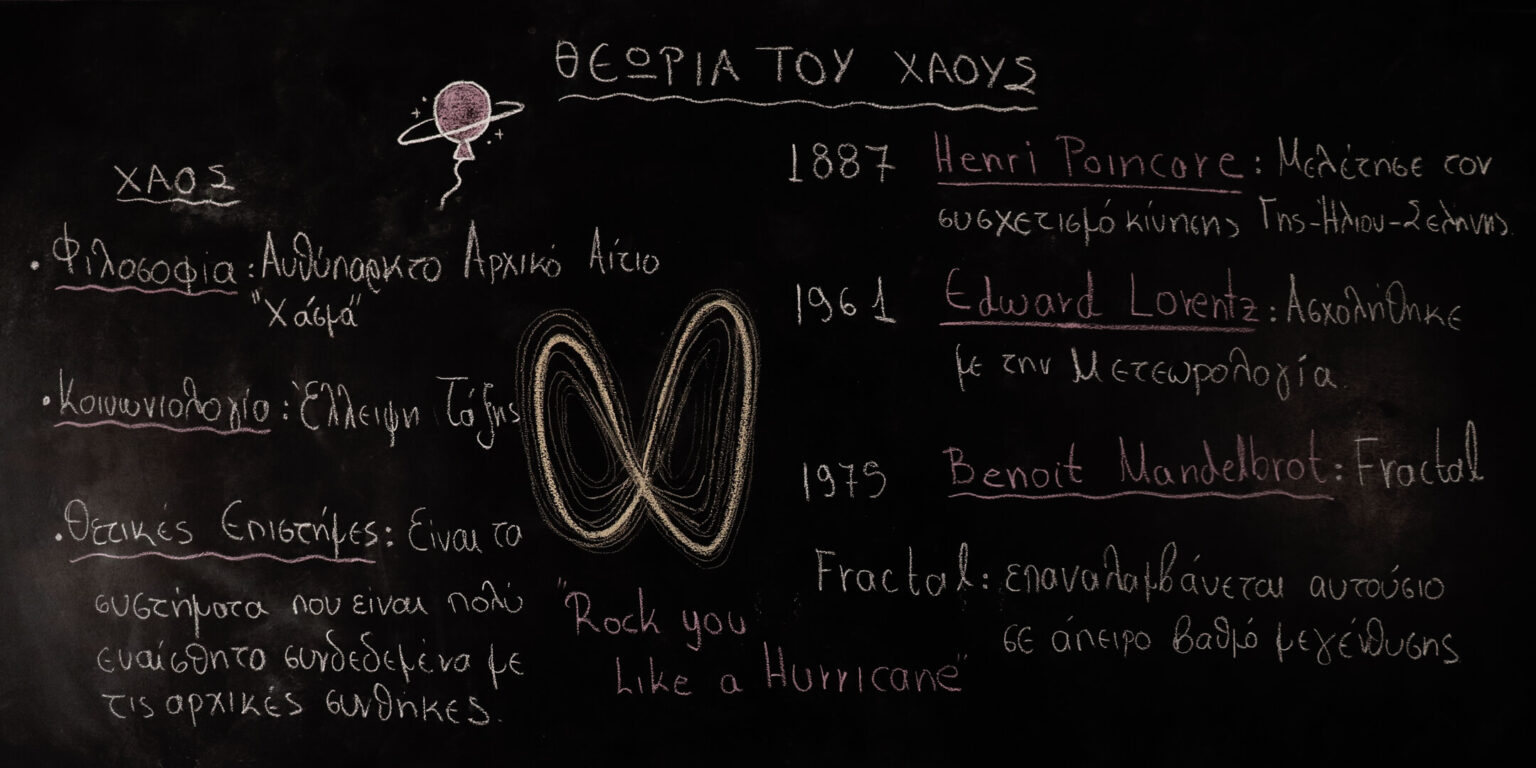 ΘΕΩΡΙΑ ΤΟΥ ΧΑΟΥΣ
ΧΑΟΣ
• Φιλοσοφία : Αυθύπαρκτο Αρχικό Αίτιο
"Χάσμα"
• Κοινωνιολογία : Έλλειψη Τάξης
• Θετικές Επιστήμες : Είναι τα
συστήματα που είναι πολύ
ευαίσθητα συνδεδεμένα με
τις αρχικές συνθήκες.
"Rock you
Like a Hurricane"
1887 Henri Poincare : Μελέτησε τον
συσχετισμό κίνησης Γης-Ήλιου-Σελήνης.
1961 Edward Lorentz : Ασχολήθηκε
με την Μετεωρολογία.
1975 Benoit Mandelbrot : Fractal
Fractal : επαναλαμβάνεται αυτούσιο
σε άπειρο βαθμό μεγένθυσης